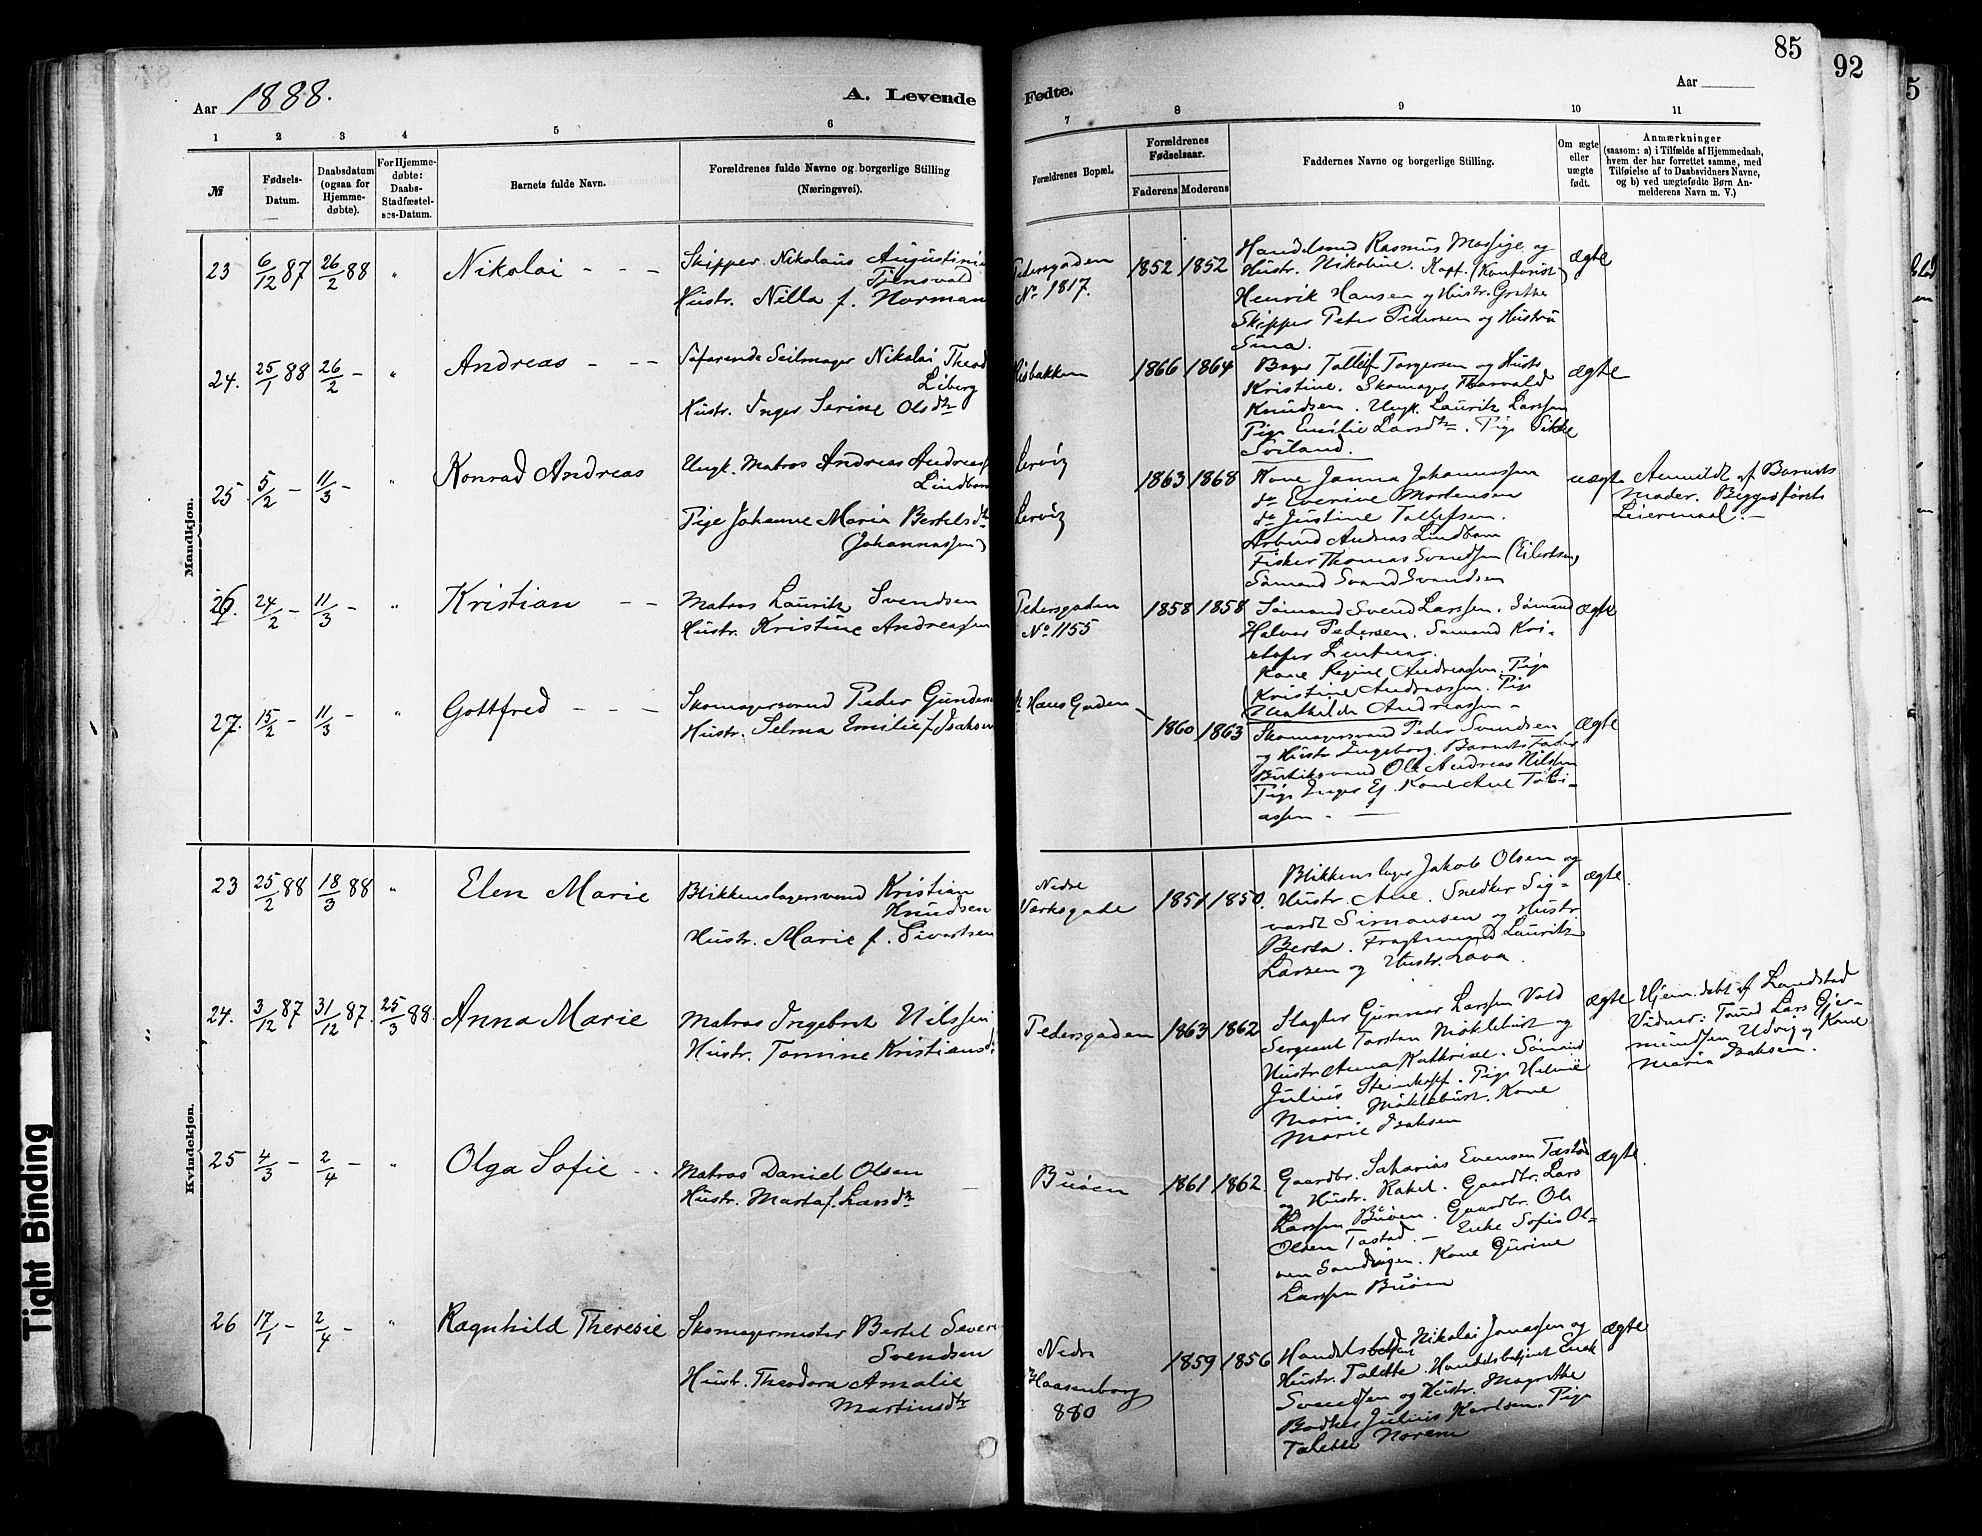 85
92
5
Aar 1888.
A. Levende
Fødte.
Aar
1 2 3 4 5 6 7 8 9 10 11
№
Fødsels-
Datum.
Daabsdatum
(ogsaa for
Hjemme-
døbte).
For Hjemme-
døbte:
Daabs-
Stadfæstel-
ses-Datum.
Barnets fulde Navn.
Forældrenes fulde Navne og borgerlige Stilling
(Næringsvei).
Forældrenes Bopæl.
Forældrenes
Fødselsaar.
Faderens Moderens
Faddernes Navne og borgerlige Stilling.
Om ægte
eller
uægte
født.
Anmærkninger
(saasom: a) i Tilfælde af Hjemmedaab,
hvem der har forrettet samme, med
Tilføielse af to Daabsvidners Navne,
og b) ved uægtefødte Børn An-
melderens Navn m. V.)
Mandkjøn.
23 6/12 87 26/2 88 " Nikolai - - -
Skipper Nikolaus Augustinius
Tjensvold
Hustr. Nilla f. Norman
Pedersgaden
No 1817.
1852 1852
Handelsmd Rasmus Mossige og
Hustr. Nikoline. Kapt. (Kontorist)
Henrik Hansen og Hustr. Grethe
Skipper Peter Pedersen og Hustru
Sina.
ægte
24. 25/1 88 26/2 - " Andreas - - -
Søfarende Seilmager Nikolai Theod
Liberg
Hustr. Inger Serine Olsdtr
1866 1864
Bager Tollef Torgersen og Hustr
Kristine. Skomager Thorvald
Knudsen. Ungk. Lauritz Larssen
Pige Emilie Larsdtr. Pige Sikke
Soiland.
ægte
25 5/2 - 11/3 - " Konrad Andreas
Ungk. Matros Andreas Andreas
Lindbom
Pige Johanne Maria Bertelsdtr
(Johannassen)
Lervig
Lervig
1863 1868
Kone Janna Johannassen
do Everine Mortensen
do Justine Tollefsen.
Arbmd Andreas Lindbom
Fisker Thomas Svendsen (Eilertsen)
Sømand Svend Svendsen
uægte
Anmeldt af Barnets
Moder. Begges første
Leiermaal. -
26. 24/2 - 11/3 - " Kristian - -
Matros Lauritz Svendsen
Hustr. Kristine Andreassen
Pedersgaden
No 1155
1858 1858
Sømand Svend Larssen. Sømand
Halvor Pedersen. Sømand Kri-
stofer
Kone Regine Andreassen. Pige
Kristine Andreassen. Pige
Mathilde Andreassen -
ægte
27. 15/2 - 11/3 - " Gottfred - - -
Skomagersvend Peder Gunders
Hustr. Selma Emilie f. Isaksen
St Hans Gaden
1860 1863
Skomagersvend Peder Svendsen
og Hustr Ingeborg. Barnets Fader
Butiksvend Ole Andreas Nilssen
Pige Inger Ej. Kone Ane Tobi-
assen. -
ægte
Kvindekjøn.
23 25/2 88 18/3 88 " Elen Marie
Blikkenslagersvend Kristian
Knudsen
Hustr. Marie f. Sivertsen
Nedre
Værksgade
1851 1850.
Blikkenslager Jakob Olsen og
Hustr. Ane. Snedker Sig-
vardt Simonsen og Hustr
Berta. Fragtemand Lauritz
Larsen og Hustr. Lava.
ægte.
24. 3/12 87 31/12 87. 25/3 88. Anna Marie
Matros Ingebret Nilssen
Hustr. Tomine Kristiansd
Pedersgaden
1863 1862
Slagter Gunnar Larssen Vold
Sergeant Torsten Mökleburst og
Hustr Anna Kathrine. Sømand
Julius Steinkopf. Pige Helene
Maria Mökleburst. Kone
Marie Isaksen
ægte
Hjem. døbt af Landstad
Vidner: Lars Gjer-
mundsen Udvig og Kone
Maria Isaksen.
25 4/3 - 2/4 - " Olga Sofie - -
Matros Daniel Olsen
Hustr. Marta f. Larsdtr
Buöen
1861 1862
Gaardbr. Sakarias Evensen Tasta
og Hustr. Rakel. Gaardbr. Lars
Larssen Buöen. Gaardbr. Ole
Olsen Tastad. - Enke Sofie Ol-
sen Sandvigen. Kone Gurine
Larssen Buöen
ægte.
26 17/1 - 2/4 - " Ragnhild Theresie
Skomagermester Bertel Severi
Svendsen
Hustr. Theodora Amalie
Martinsdtr
Nedre
Blaasenborg
880
1859 1856
Handelsbetjent Nikolai Jonassen og
Hustr. Talette. Handelsbetjent Enok
Svendsen og Hustr. Magrethe
Bødker Julius Karlsen. Pige
Talette Norem
ægte
Tight Binding